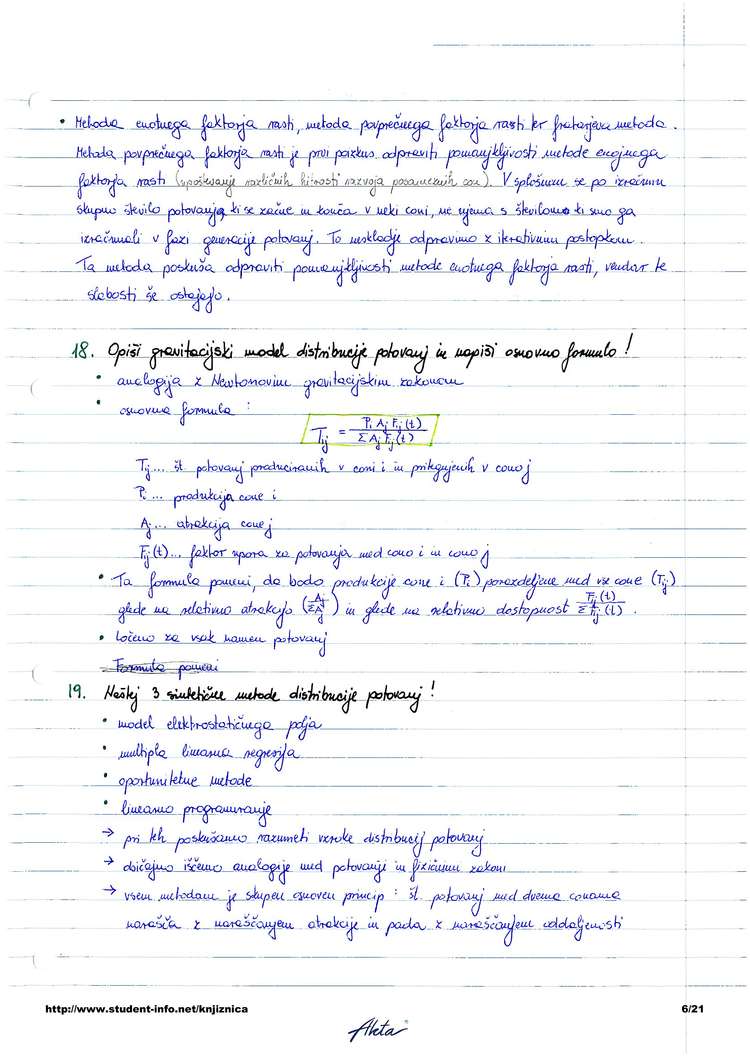 • Metoda enotnega faktorja rasti, metoda povprečnega faktorja rasti ter fratarjeva metoda.
Metoda povprečnega faktorja rasti je prvi poizkus odpraviti pomanjkljivosti metode enojnega
faktorja rasti (upoštevanje različnih hitrosti razvoja posameznih con). V splošnem se po izračunu
skupno število potovanj, ki se začne in konča v neki coni, ne ujema s številom, ki smo ga
izračunali v fazi generacije potovanj. To neskladje odpravimo z iterativnim postopkom.
Ta metoda poskuša odpraviti pomanjkljivosti metode enotnega faktorja rasti, vendar te
slabosti še ostajajo.
18. Opiši gravitacijski model distribucije potovanj in napiši osnovno formulo!
• analogija z Newtonovim gravitacijskim zakonom
• osnovna formula :
T_ij = P_i A_j F_ij(t) / Σ A_j F_ij(t)
T_ij ... št. potovanj produciranih v coni i in pritegnjenih v cono j
P_i ... produkcija cone i
A_j ... atrakcija cone j
F_ij(t) ... faktor upora za potovanja med cono i in cono j
• Ta formula pomeni, da bodo produkcije cone i (P_i) porazdeljene med vse cone (T_ij)
glede na relativno atrakcijo (A_j / ΣA_j) in glede na relativno dostopnost F_ij(t) / Σ F_ij(t) .
• ločeno za vsak namen potovanj
Formula pomeni
19. Naštej 3 sintetične metode distribucije potovanj!
• model elektrostatičnega polja
• multipla linearna regresija
• oportunitetne metode
• linearno programiranje
→ pri teh poskušamo razumeti vzroke distribucij potovanj
→ običajno iščemo analogije med potovanji in fizičnimi zakoni
→ vsem metodam je skupen osnoven princip : št. potovanj med dvema conama
narašča z naraščanjem atrakcije in pada z naraščanjem oddaljenosti
http://www.student-info.net/knjiznica
6/21